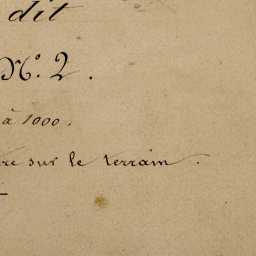 dit
Nº. 2.
à 1000.
re sur le terrain.